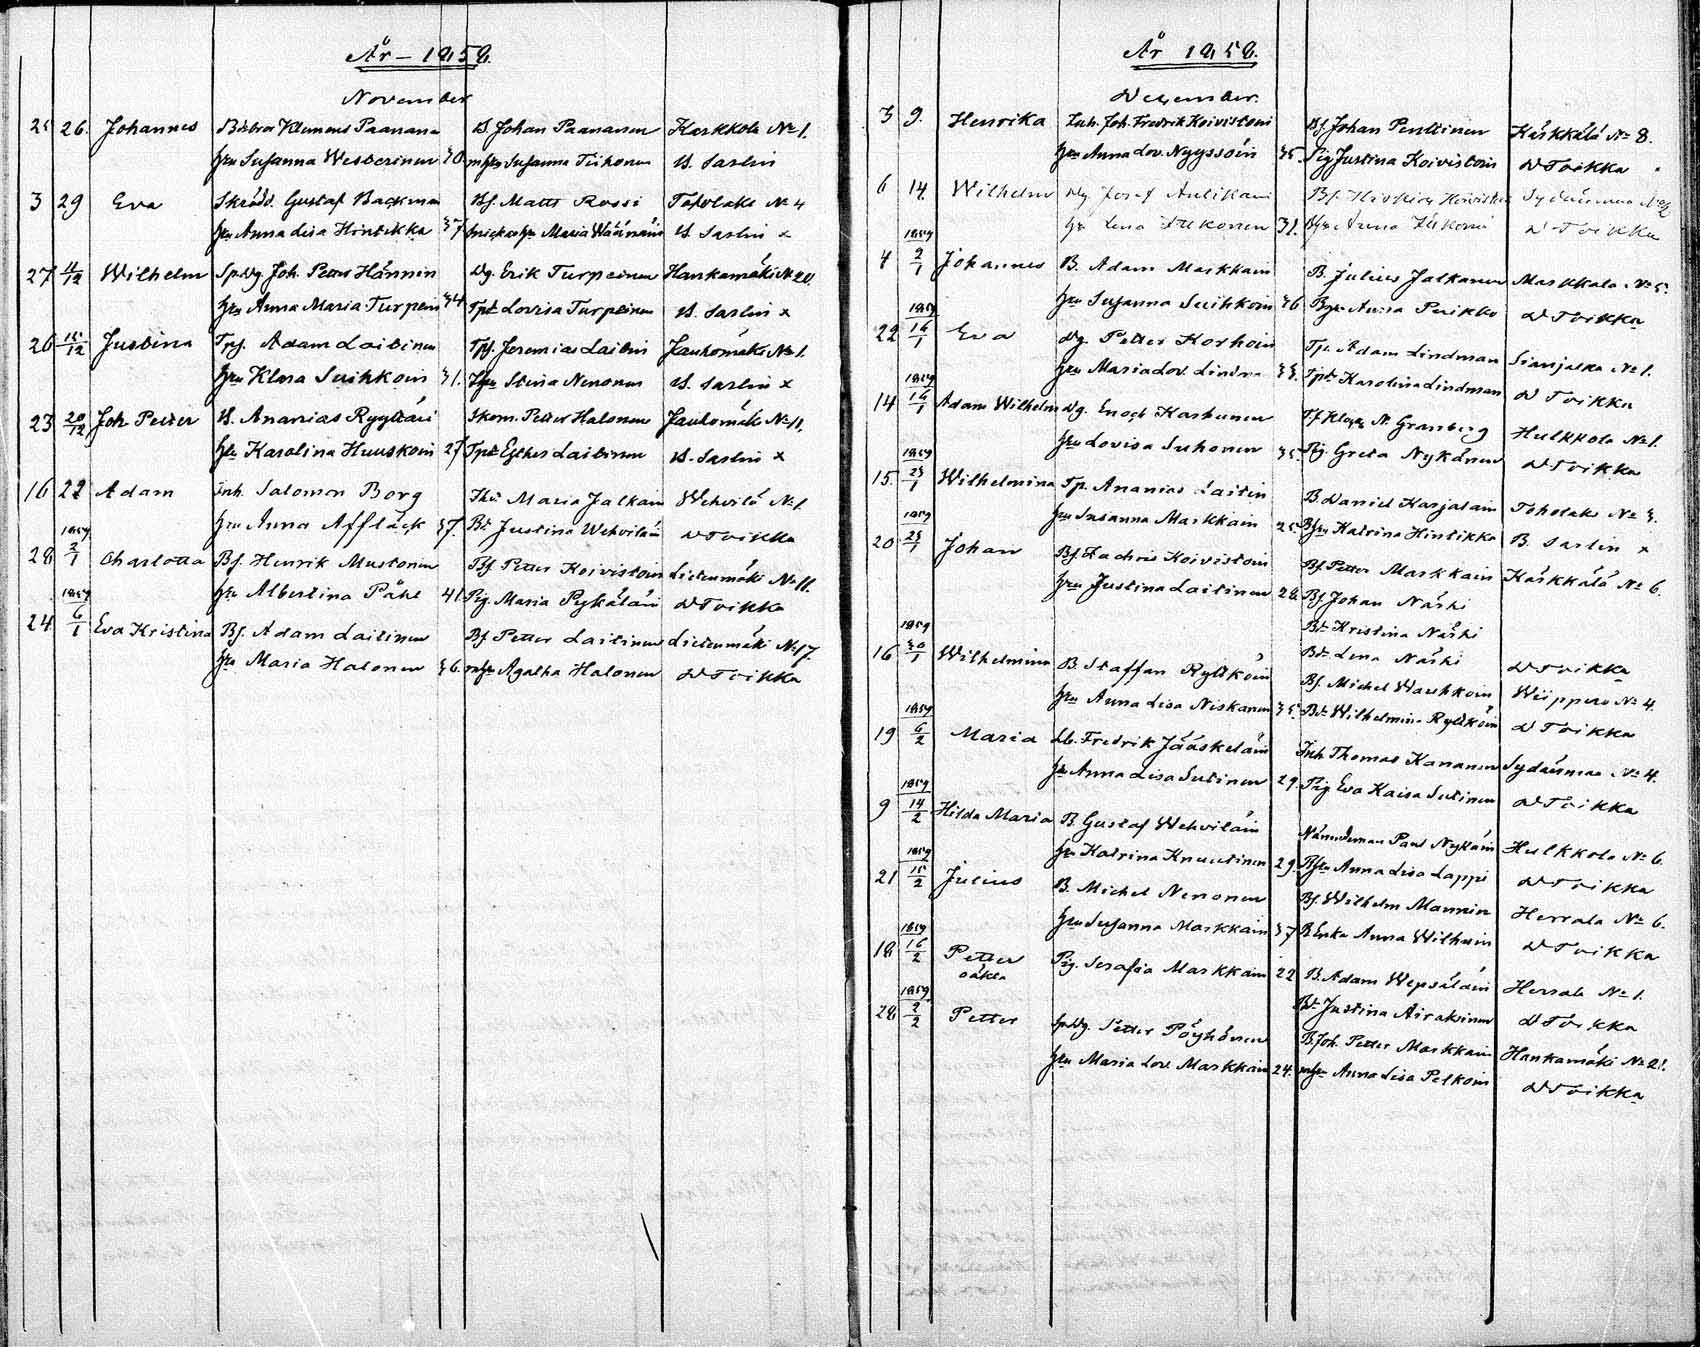 År - 1858.
November
25 26. Johannes Bdebror Klemens Paanana B. Johan Paananen Karkkola No 1.
hu Susanna Westerinen 30. mhu Susanna Tiihonen B. Sarlin
3 29 Eva Skrädd. Gustaf Backman Bf. Matts Rossi Toholaks No 4
hu Anna Lisa Hintikka 37. Snickarehu Maria Wäänäin B. Sarlin x
27 4/12 Wilhelm Spdg. Joh. Petter Hännin Dg. Erik Turpeinen Hankamäki No 20.
hu Anna Maria Turpein 34 Tpd Lovisa Turpeinen B. Sarlin x
26 15/12 Justina Tpf. Adam Laitinen Tpf. Jeremias Laitin Jauhomäki No 1.
hu Klara Suihkoin 31. Thu Stina Nenonen B. Sarlin x
23 20/12 Joh Petter B. Ananias Ryytäri Skom. Petter Halonen Jauhomäki No 11.
hu Karolina Huuskoin 27 Tpd Esther Laitinen B. Sarlin x
16 22 Adam Inh. Salomon Borg Thu Maria Jalkain Wehvilä No 1
hu Anna Affläck 37. Bd Justina Wehviläin D Toikka
1859
28 2/1 Charlotta Bf. Henrik Mustonen Bf. Petter Koivistoin Lietenmäki No 11.
hu Albertina Påhl 41. Pig Maria Pykäläin D Toikka
1859
24 6/1 Eva Kristina Bf. Adam Laitinen Bf Petter Laitinen Lietenmäki No 17.
hu Maria Halonen 36. mhu Agatha Halonen D Toikka
År 1858.
December.
3 9. Henrika Inh. Joh. Fredrik Koivistoin Bf. Johan Penttinen Kärkkälä No 8.
hu Anna Lov. Nyyssöin 35. Pig Justina Koivistoin D Toikka
6 14. Wilhelm Dg Josef Aulikain Bf. Koivistoin Sydänmaa
hu Lena Ilkonen 31. Anna D Toikka
1859
4 2/1 Johannes B. Adam Markkain B. Julius Jalkanen Markkala No 5.
hu Susanna Suihkoin 36 Bhu Anna Poikko D Toikka
1859
22 16/1 Eva Dg. Petter Korhoin Tp. Adam Lindman Sianjalka No 1.
hu Maria Lov. Lindna 33. Tpd Karolina Lindman D Toikka
1859
14 16/1 Adam Wilhelm Dg. Enoch Karhunen A. Granberg Hulkkola No 1.
hu Lovisa Suhonen 35. Pig. Greta Nykänen D Toikka
1859
15. 23/1 Wilhelmina Tp. Ananias Laitin B. Daniel Karjalain Toholaks No 3.
hu Susanna Markkain 25. Bhu Katrina Hintikka B. Sarlin x
1859
20 23/1 Johan Bf. Zachris Koivistoin Bf Petter Markkain Kärkkälä No 6.
hu Justina Laitinen 28. Bf Johan Närhi
Bd Kristina Närhi
Bd Lena Närhi D Toikka
1859
16 30/1 Wilhelmina B. Staffan Rytköin Bf. Michel Wauhkoin Wiippero No 4.
hu Anna Lisa Niskanen 35. Bd Wilhelmina Rytköin D Toikka
1859
19 6/2 Maria Lb. Fredrik Jääskeläin Inh Thomas Kananen Sydänmaa No 4.
hu Anna Lisa Sutinen 29. Pig Eva Kaisa Sutinen D Toikka
1859
9 14/2 Hilda Maria B. Gustaf Wehviläin Nämndeman Paul Nykäin Hulkkola No 6.
hu Katrina Knuutinen 29. Bhu Anna Lisa Lappi D Toikka
1859
21 15/2 Julius B. Michel Nenonen Bf. Wilhelm Mannin Herrala No 6.
hu Susanna Markkain 37 B Enka Anna Wilhuin D Toikka
1859
18 16/2 Petter Pig. Serafia Markkain 22 B. Adam Wepsäläin Herrala No 1.
oäkta Bd Justina Airaksinen D Toikka
1859
28 2/2 Petter Spdg. Petter Pöyhönen B. Joh. Petter Markkain Hankamäki No 21.
hu Maria Lov. Markkain 24. mhu Anna Lisa Pelkoin D Toikka